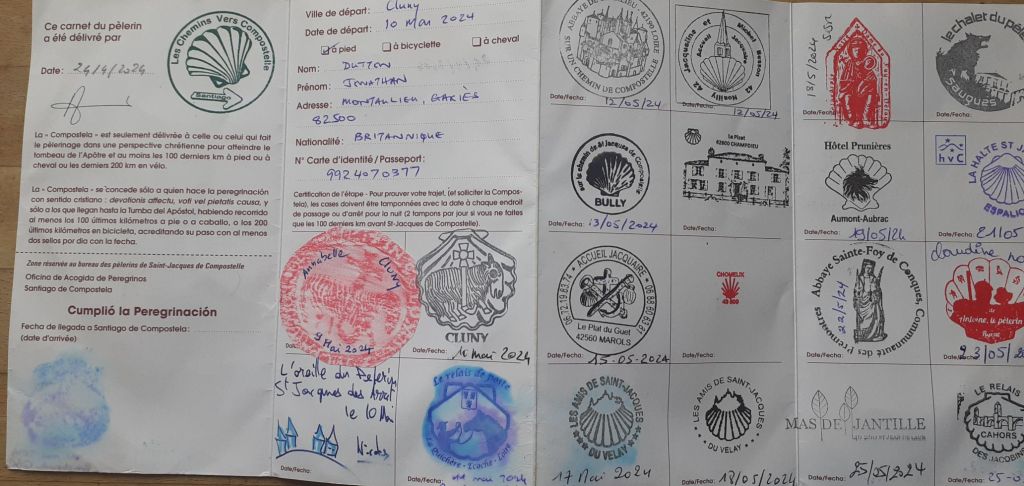 Ce carnet du pèlerin
a été délivré par
Les Chemins Vers Compostelle
Santiago
Date : 24/4/2024
La « Compostela » est seulement délivrée à celle ou celui qui fait
le pèlerinage dans une perspective chrétienne pour atteindre le
tombeau de l'Apôtre et au moins les 100 derniers km à pied ou à
cheval ou les derniers 200 km en vélo.
La « Compostela » se concede sólo a quien hace la peregrinación
con sentido cristiano : devotionis affectu, voti vel pietatis causa, y
sólo a los que llegan hasta la Tumba del Apóstol, habiendo recorrido
al menos los 100 últimos kilómetros a pie o a caballo, o los 200
últimos kilómetros en bicicleta, acreditando su paso con al menos
dos sellos por dia con la fecha.
Zone réservée au bureau des pèlerins de Saint-Jacques de Compostelle
Oficina de Acogida de Peregrinos
Santiago de Compostela
Cumplió la Peregrinación
Fecha de llegada a Santiago de Compostela :
(date d'arrivée)
Ville de départ : Cluny
Date de départ : 10 Mai 2024
à pied
à bicyclette
à cheval
Nom : DUTTON
Prénom : JONATHAN
Adresse : MONTAULIEU, GARIÈS
82500
Nationalité : BRITANNIQUE
N° Carte d'identité / Passeport :
9924070377
Certification de l'étape - Pour prouver votre trajet, (et solliciter la Compos-
tela), les cases doivent être tamponnées avec la date à chaque endroit
de passage ou d'arrêt pour la nuit (2 tampons par jour si vous ne faites
que les 100 derniers km avant St-Jacques de Compostelle).
Annabelle CLUNY
9 Mai 2024
CLUNY
Date/Fecha : 10 mai 2024
L'oreille du Pèlerin
St Jacques des Arrêts
le 10 Mai
Nicolas
Date/Fecha :
Le relais de poste
Date/Fecha : 11 mai 2024
43190 LOIRE
SUR UN CHEMIN DE COMPOSTELLE
Date/Fecha : 12/05/24
Jacqueline et
Accueil Jacquaire
42 Nouilly 42
Date/Fecha : 12/05/24
Sur le chemin de St Jacques de Compostelle
BULLY
Date/Fecha : 13/05/2024
Le Pizet
42600 CHAMPDIEU
Date/Fecha :
ACCUEIL JACQUAIRE
06 72 19 63 74
06 88 80 69 87
Le Plat du Guet
42560 MAROLS
Date/Fecha : 15-05-2024
CHOMELIX
43 500
Date/Fecha :
LES AMIS DE SAINT-JACQUES
DU VELAY
Date/Fecha : 17 Mai 2024
LES AMIS DE SAINT-JACQUES
DU VELAY
Date/Fecha : 18/05/2024
18/5/2024
Date/Fecha :
le chalet du pè
Saugues
Date/Fecha :
Hôtel Prunières
Aumont-Aubrac
Date/Fecha : 19/05/24
hvc
LA HALTE ST J
ESPALIO
Date/Fecha : 21/05
Abbaye Sainte-Foy de Conques, Communauté des Prémontrés
22/5/24
Date/Fecha :
Claudine
de
Antoine, le pèlerin
Date/Fecha : 23/05/2
MAS DE JANTILLE
Date/Fecha : 25/05/2024
LE RELAIS
CAHORS
DES JACOBINS
Date/Fecha : 25-0